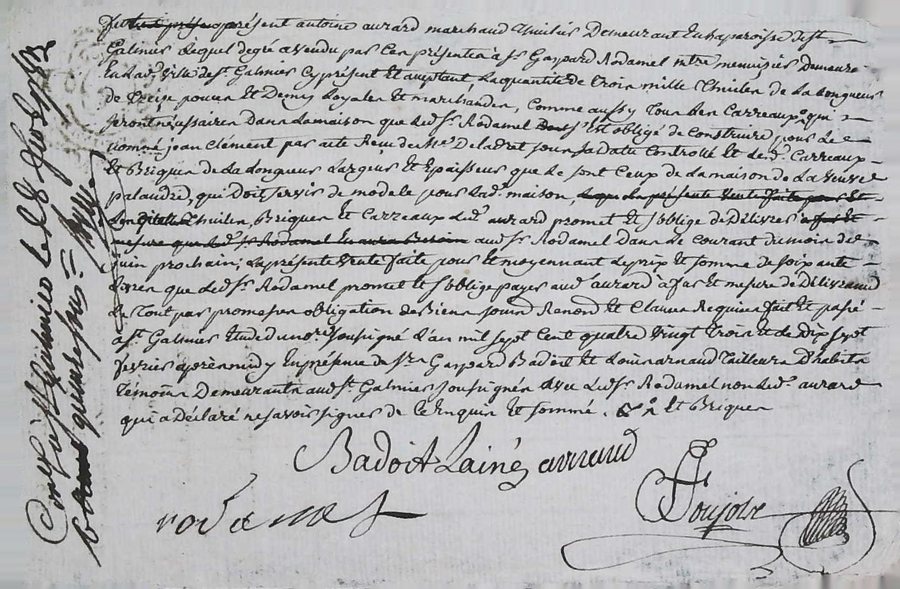 fut présent antoine aurard marchand thuilier Demeurant En la paroisse de st
Galmier Lequel de gré a vendu par Ces présentes à sr Gaspard Rodamel mtre menuizier Demeurt
En lad. Ville de st Galmier Cy présent Et acceptant La quantité de trois mille thuiles de La Longueur
de treize pouces Et Demy Loyales Et marchandes, Comme aussy Tous Les Carreaux qui
seront nécessaires Dans La maison que Led. sr Rodamel s'Est obligé de Construire pour Le
nommé jean Clément par acte Reçu de Me Deladret jour sa datte Controllé Et Lesd. Carreaux
Et Briques de La Longueur Largeur Et Epaisseur que Le sont Ceux de La maison de La veuve
palaudre, qui Doit servir de modele pour Lad. maison, Laquelle présente Vente faite pour Et
thuiles, Briques Et Carreaux Led. aurard promet Et s'oblige de Délivrer à fur Et
mesure que Led. sr Rodamel En aura Besoin aud. sr Rodamel Dans Le Courant du mois de
juin prochain; La présente Vente faite pour Et moyennant Le prix Et somme de soixante
Livres que Led. sr Rodamel promet Et s'oblige payer aud. aurard à fur Et mesure de Délivrance
Le Tout par promesses obligation de Biens soumd Renond Et Clauses Requises fait Et passé
à st Galmier Etude du nore soussigné L'an mil sept Cent quatre Vingt Trois Et Le Dix sept
fevrier après midy En présence de srs Gaspard Badoit Et Louis arnaud Tailleurs D'habits
témoins Demeurants aud. st Galmier soussignés avec Led. sr Rodamel non Led. aurard
qui a Déclaré ne savoir signer de Ce Enquis Et sommé. Et Briques
Badoit Lainé arnaud
rodamel
Poujolre
Con. à St Galmier Le 28
quinze sols